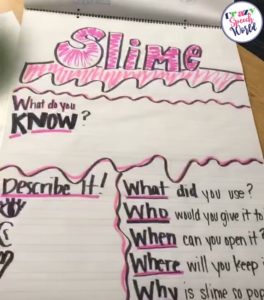 I
Speech
World
Slime
What do you
KNOW?
Describe It!
What did you use?
Who would you give it to
When can you open it?
Where will you keep i
Why is slime so pop